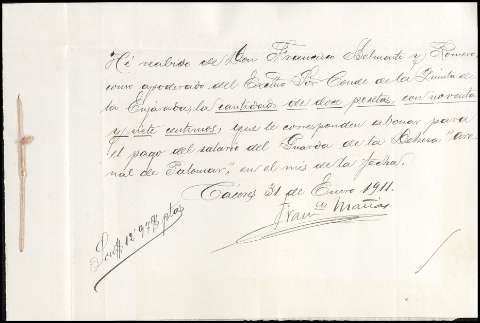 He recibido de Don Francisco Belmonte y Romero
como apoderado del Excmo Sor Conde de la Quinta de
la Enjarada, la cantidad de doce pesetas con noventa
y siete centimos, que le corresponden abonar para
el pago del salario del Guarda de la Dehesa "Are-
nal de Palomar," en el mes de la fecha.
Cáceres 31 de Enero 1911.
Franco Mañas
Son # 12'97 # ptas